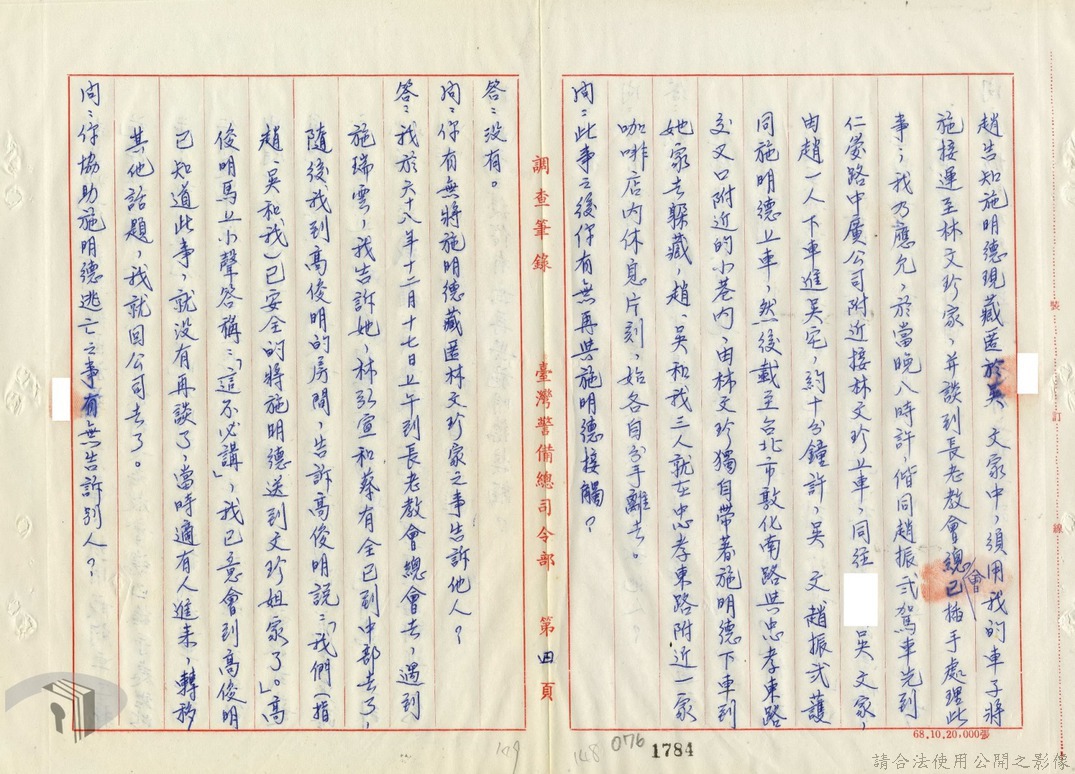 趙告知施明德現藏匿於吳 文家中，須用我的車子將
施接運至林文珍家，并談到長老教會總會已插手處理此
事；我乃應允，於當晚八時許，偕同趙振弍駕車先到
仁愛路中廣公司附近接林文珍上車，同經 吳 文家，
由趙一人下車進吳宅，約十分鐘許，吳 文趙振弍護
同施明德上車，然後載至台北市敦化南路與忠孝東路
交叉口附近的小巷內，由林文珍獨自帶著施明德下車到
她家去躲藏，趙、吳和我三人就在忠孝東路附近一家
咖啡店內休息片刻，始各自分手離去。
問：此事之後你有無再與施明德接觸？
調查筆錄 臺灣警備總司令部 第四頁
答：沒有。
問：你有無將施明德藏匿林文珍家之事告訴他人？
答：我於六十八年十二月十七日上午到長老教會總會去，遇到
施瑞雲，我告訴她，林弘宣和蔡有全已到中部去了，
隨後我到高俊明的房間，告訴高俊明說：「我們（指
趙、吳和我）已安全的將施明德送到文珍姐家了」。高
俊明馬上小聲答稱：「這不必講」，我已意會到高俊明
已知道此事，就沒有再談了，當時適有人進來，轉移
其他話題，我就回公司去了。
問：你協助施明德逃亡之事有無告訴別人？
裝 訂 線
68.10.20,000張
149
148
076
1784
請合法使用公開之影像